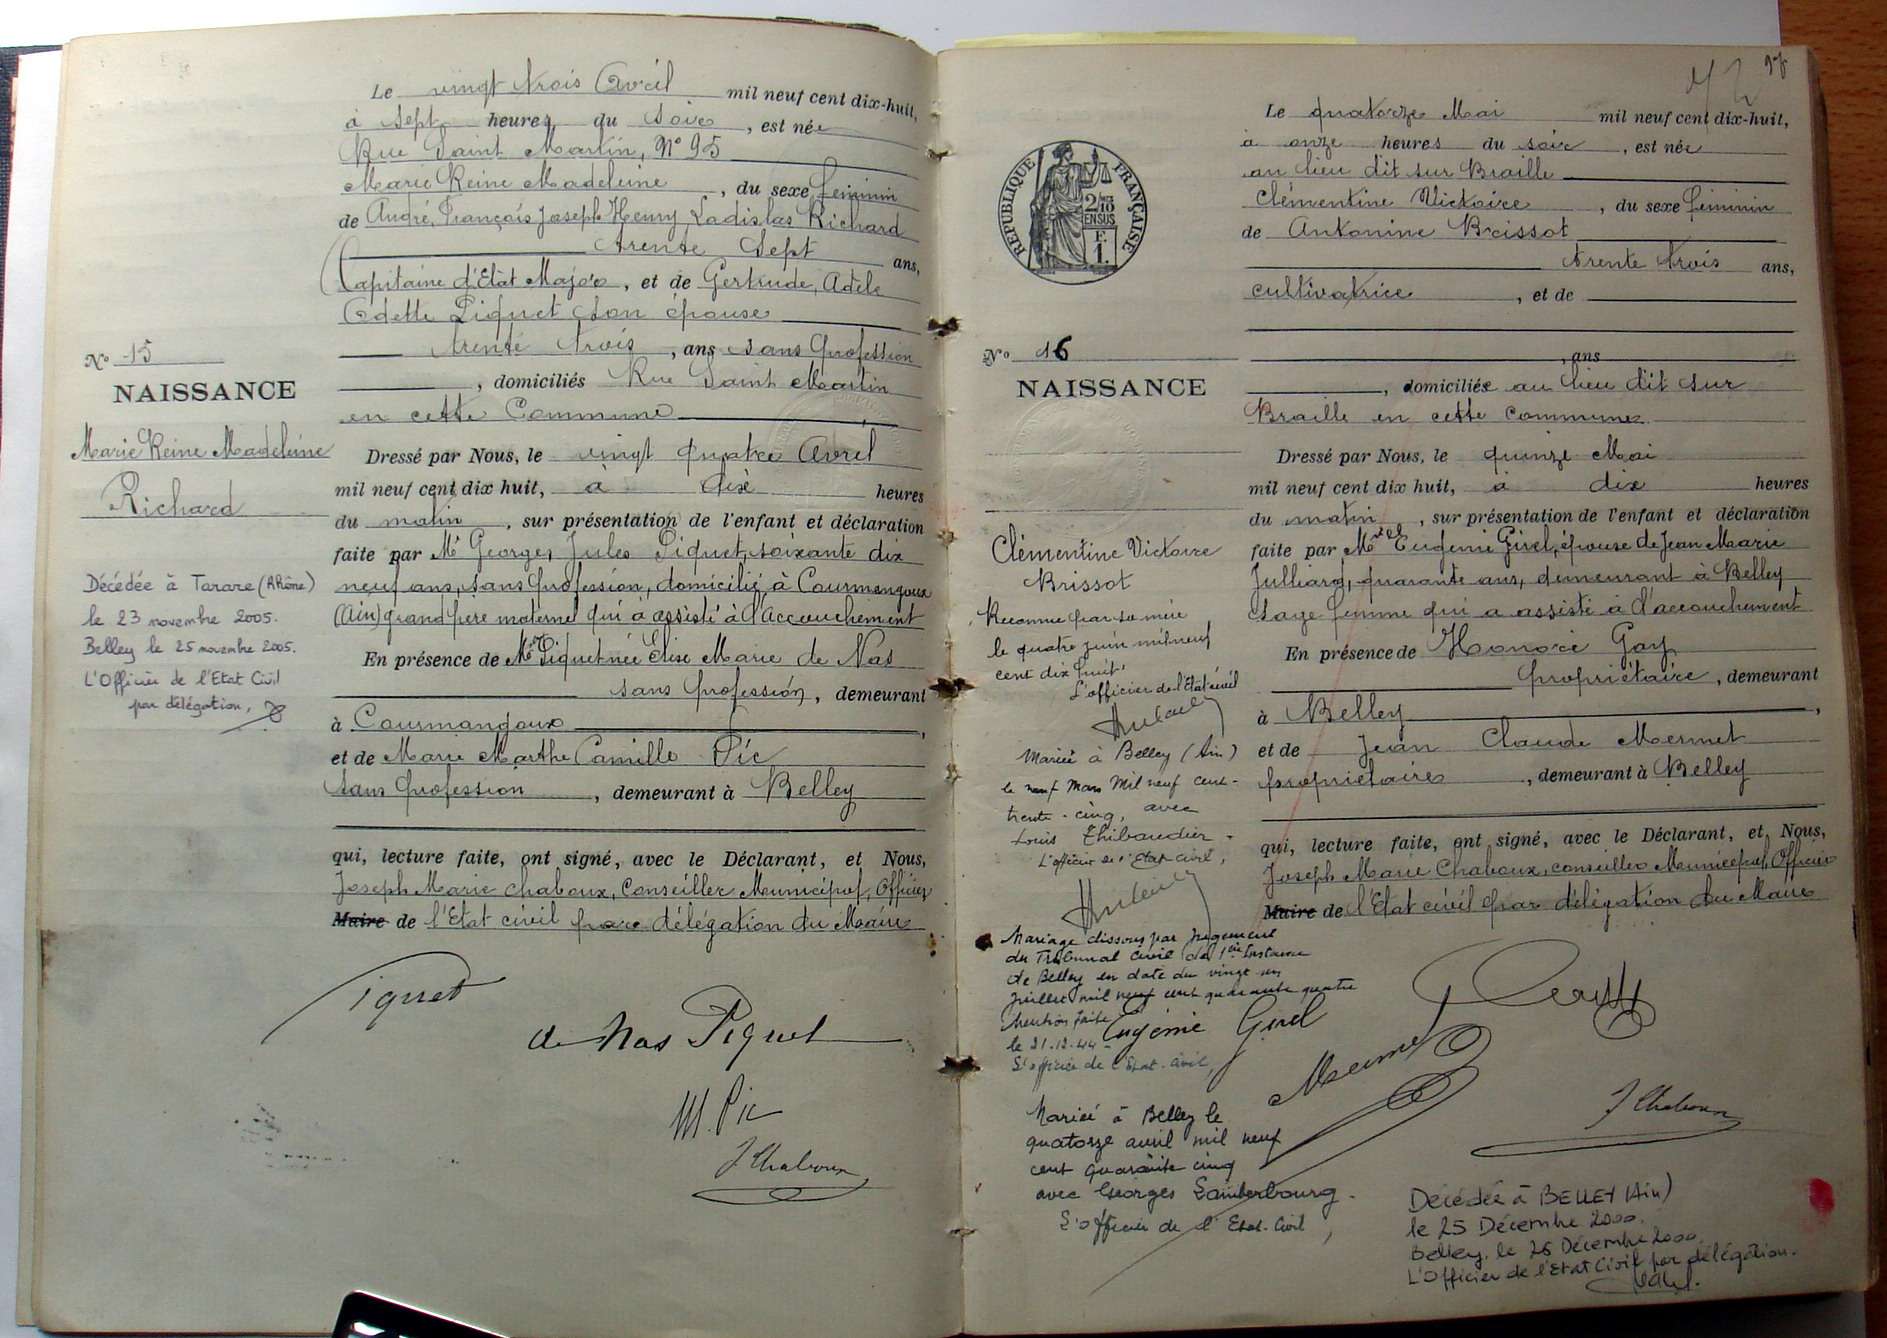 Le vingt trois Avril mil neuf cent dix-huit,
à sept heures du soir, est née
Rue Saint Martin, N° 95
Marie Reine Madeleine, du sexe féminin
de André, François Joseph Henry Ladislas Richard
trente sept ans,
Capitaine d'Etat Major, et de Gertrude, Adèle
Odette Piquet son épouse
trente trois, ans sans profession
, domiciliés Rue Saint Martin
en cette Commune
N° 15
NAISSANCE
Marie Reine Madeleine
Richard
Décédée à Tarare (Rhône)
le 23 novembre 2005.
Belley le 25 novembre 2005.
L'Officier de l'Etat Civil
par délégation,
Dressé par Nous, le vingt quatre Avril
mil neuf cent dix huit, à dix heures
du matin, sur présentation de l'enfant et déclaration
faite par Mr Georges, Jules Piquet, soixante dix
neuf ans, sans profession, domicilié à Courmangoux
(Ain) grand père maternel qui a assisté à l'accouchement
En présence de Me Piquet née Elise Marie de Nas
sans profession, demeurant
à Courmangoux,
et de Marie Marthe Camille Pic
sans profession, demeurant à Belley
qui, lecture faite, ont signé, avec le Déclarant, et Nous,
Joseph Marie Chaboux, Conseiller Municipal, Officier
Maire de l'Etat civil par délégation du Maire
Piquet
de Nas Piquet
M. Pic
J Chaboux
92
Le quatorze Mai mil neuf cent dix-huit,
à onze heures du soir, est née
au lieu dit sur Braille
Clémentine Victoire, du sexe féminin
de Antonine Brissot
trente trois ans,
cultivatrice, et de
, ans
, domiciliée au lieu dit sur
Braille en cette commune
RÉPUBLIQUE FRANÇAISE
2/10 EN SUS
F.
1.
N° 16
NAISSANCE
Clémentine Victoire
Brissot
Reconnue par sa mère
le quatre juin mil neuf
cent dix huit
L'officier de l'Etat civil
Mariée à Belley (Ain)
le neuf Mars Mil neuf cent-
trente-cinq, avec
Louis Thibaudier -
L'officier de l'Etat civil,
Mariage dissous par jugement
du Tribunal civil de 1ère Instance
de Belley en date du vingt un
Juillet mil neuf cent quarante quatre
Mention faite
le 21.12.44 -
L'officier de l'Etat-Civil,
Mariée à Belley le
quatorze avril mil neuf
cent quarante cinq
avec Georges Lamberbourg.
L'officier de l'Etat-Civil,
Dressé par Nous, le quinze Mai
mil neuf cent dix huit, à dix heures
du matin, sur présentation de l'enfant et déclaration
faite par Me Eugénie Girel, épouse de Jean Marie
Julliard, quarante ans, demeurant à Belley
sage femme qui a assisté à l'accouchement
En présence de Honoré Gay
propriétaire, demeurant
à Belley,
et de Jean Claude Mermet
propriétaire, demeurant à Belley
qui, lecture faite, ont signé, avec le Déclarant, et Nous,
Joseph Marie Chaboux, conseiller Municipal, Officier
Maire de l'Etat civil par délégation du Maire
Eugénie Girel
Mermet
J Chaboux
Décédée à BELLEY (Ain)
le 25 Décembre 2000.
Belley, le 26 Décembre 2000.
L'Officier de l'Etat Civil par délégation.